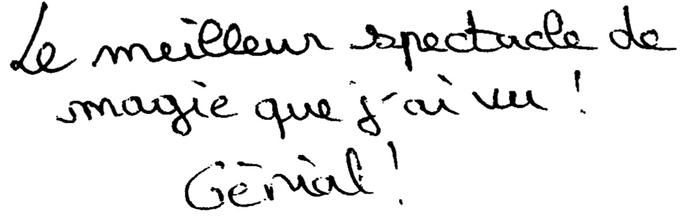 Le meilleur spectacle de
magie que j'ai vu !
Génial !